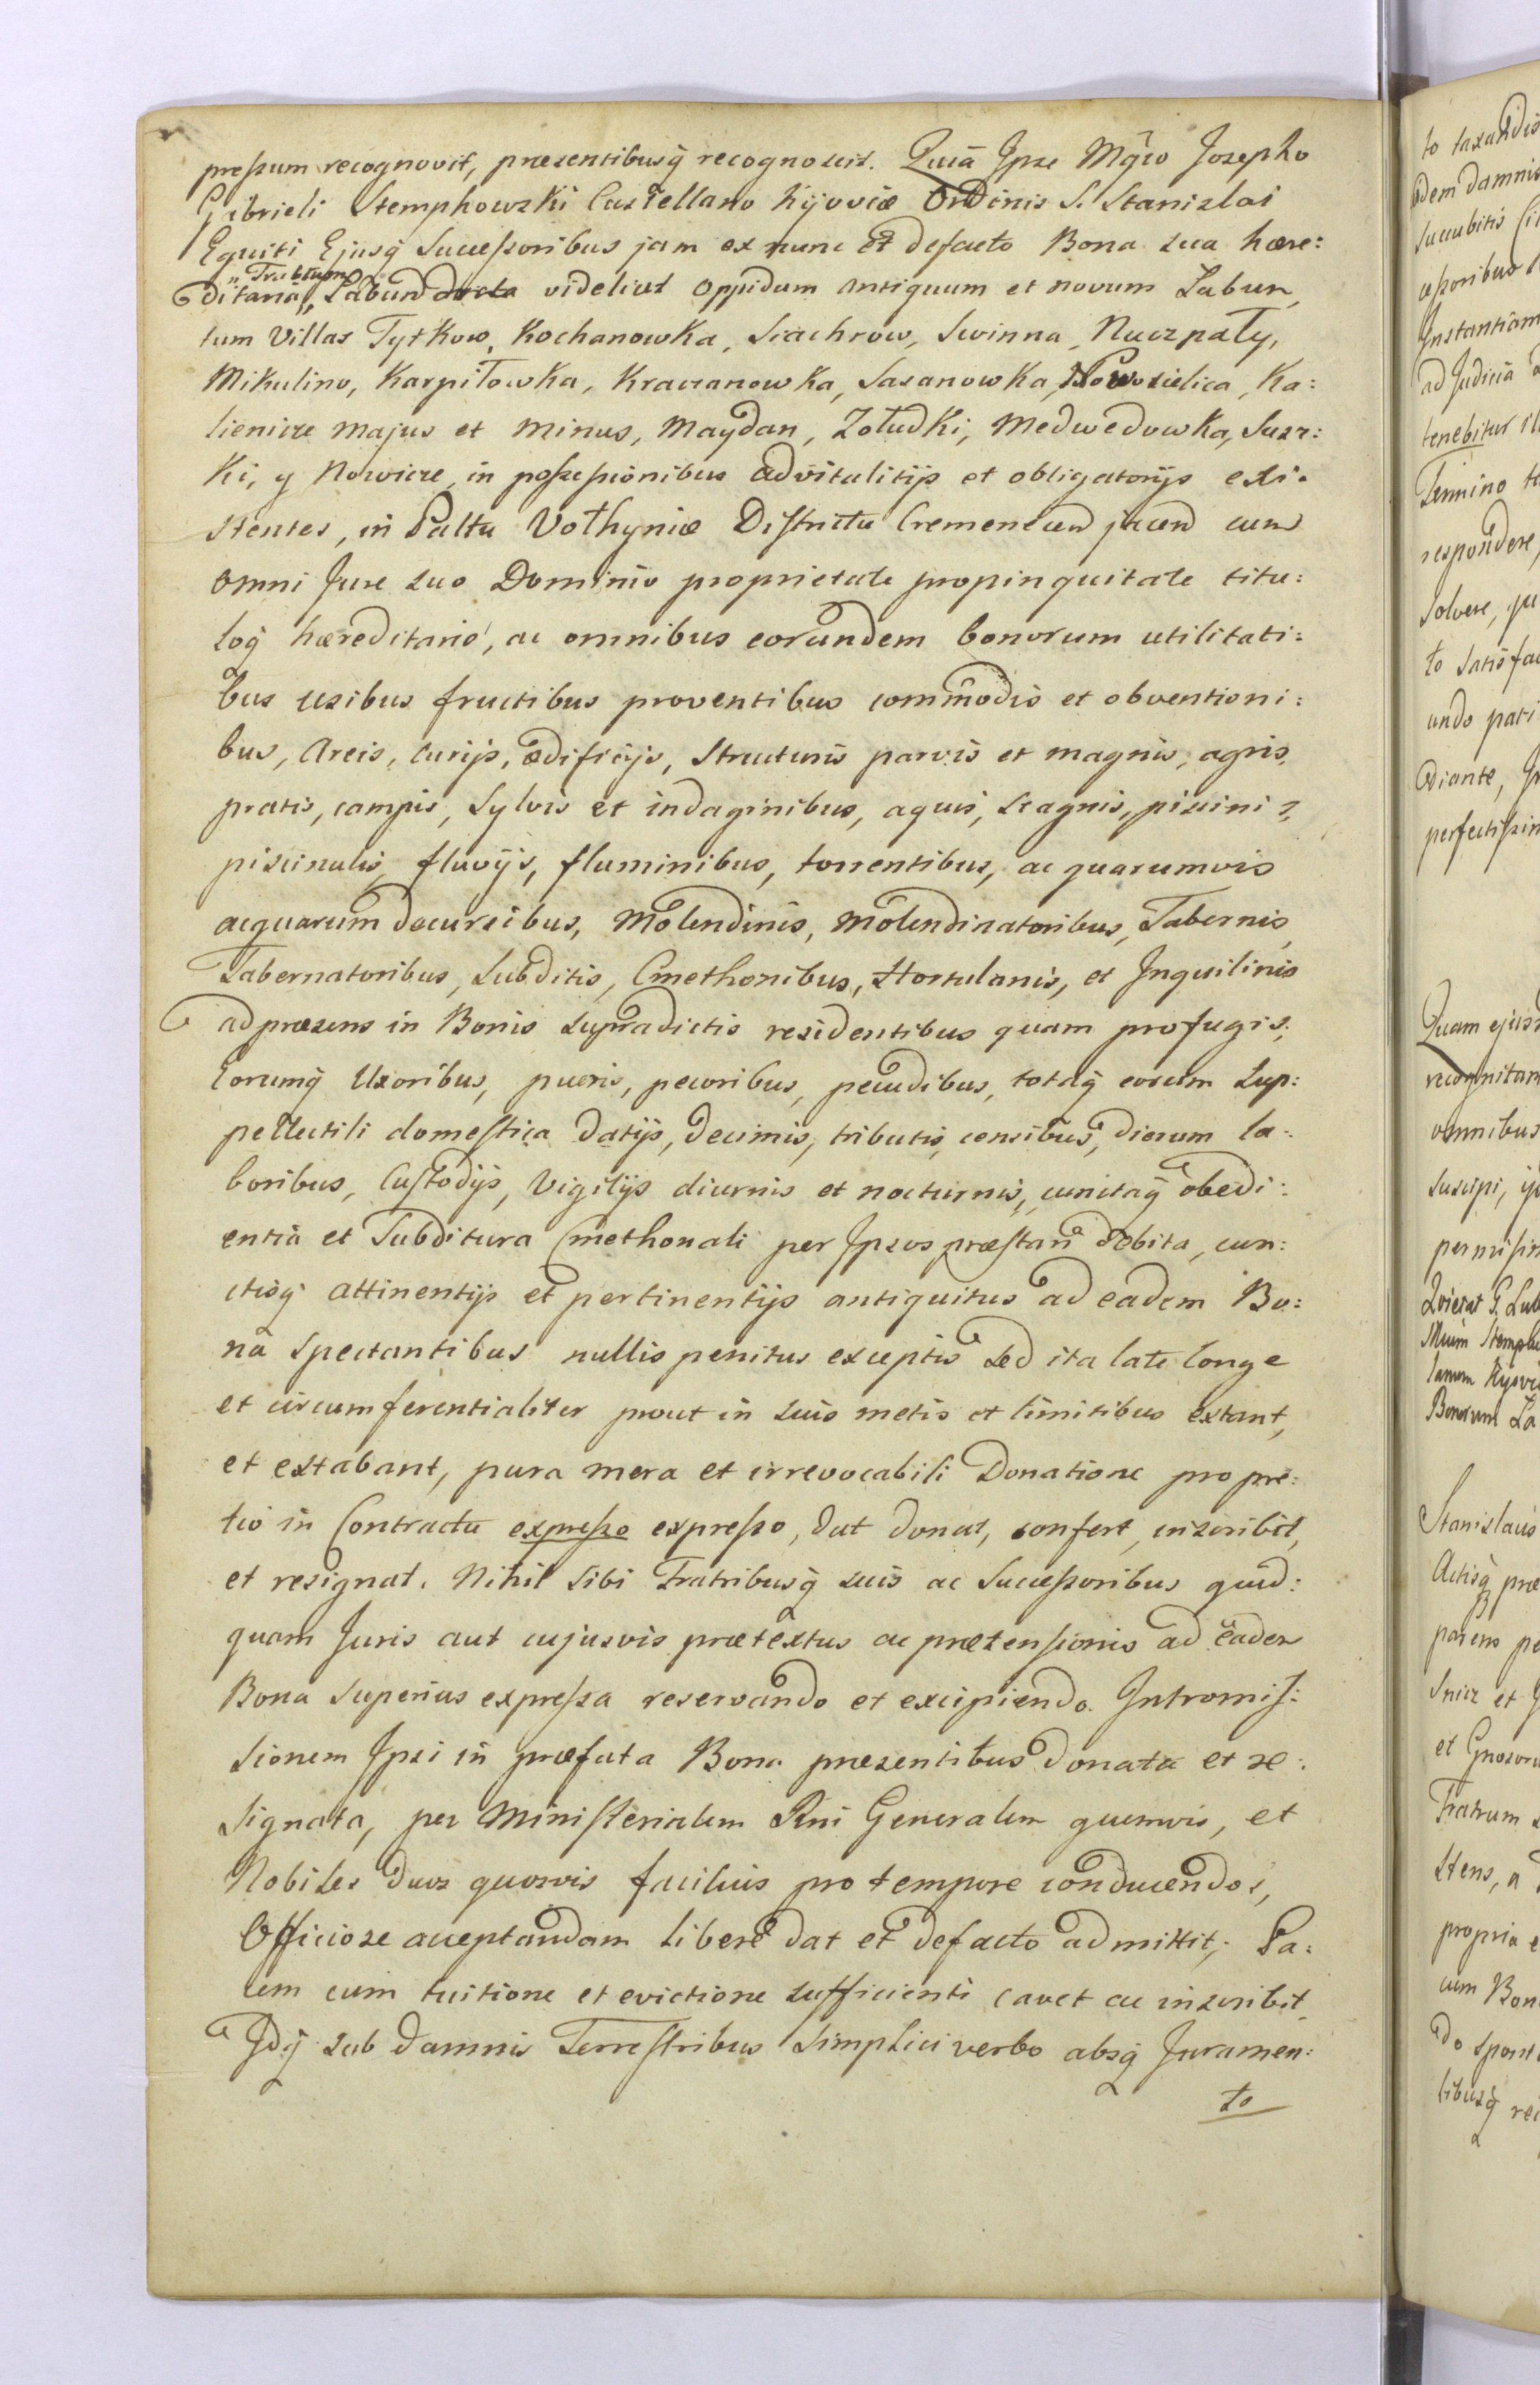 preſsum recognovit, præsentibusq̃ recognoscit. Quiã Ipse Mg̃co Josepho
Gabrieli Stempkowski Castellano Kijoviæ Ordinis S. Stanislai
Equiti Ejusq̃ Succeſsoribus jam ex nunc et defacto Bona sua hære:
ditaria, Tractum Łabund dicta videlicet oppidum antiquum et novum Łabun,
tum Villas Tytkow, Kochanowka, Siachrow, Swinna, Nuczpały,
Mikulino, Karpiłowka, Kraczanowka, Sasanowka, Nowosielica, Ka:
lienicze majus et minus, Maydan, Zołudki, Medwedowka, Susz:
ki, y Nowicze, in poſseſsionibus advitalitijs et obligatorijs exi:
stentes, in Palttu Volhyniæ Diſtrictu Cremenecen̄ jacen̄ cum
omni Jure suo Dominio proprietate propinquitate titu:
loq̃ hæreditario, ac omnibus eorundem bonorum utilitati:
bus usibus fructibus proventibus com̄modis et obventioni:
bus, Areis, curijs, ædificijs, Structuris parvis et magnis, agris,
pratis, campis, Sylvis et indaginibus, aquis, stagnis, piscinis,
piscinulis, fluvijs, fluminibus, torrentibus, ac quarumvis
acquarum decursibus, Molendinis, Molendinatoribus, Tabernis,
Tabernatoribus, Subditis, Cmethonibus, Hortulanis, et Inquilinis
ad præsens in Bonis supradictis residentibus quam profugis,
Eorumq̃ Uxoribus, pueris, pecoribus, pecudibus, totaq̃ eorum Sup:
pellectili domeſtica datijs, decimis, tributis, censibus, dierum la:
boribus, Cuſtodijs, Vigilijs diurnis et nocturnis, cunctaq̃ obedi:
entia et Subditura Cmethonali per Ipsos præſtan̄ debita, cun:
ctisq̃ attinentijs et pertinentijs antiquitus ad eadem Bo:
na Spectantibus nullis penitus exceptis sed ita late longe
et circumferentialiter prout in suis metis et limitibus extant,
et extabant, pura mera et irrevocabili Donatione pro pre:
tio in Contractu expreſso expreſso, dat donat, confert, inscribit,
et resignat. Nihil Sibi Fratribusq̃ suis ac Succeſsoribus quid:
quam Juris aut cujusvis prætextus ac prætenſionis ad eadem
Bona Superius expreſsa reservando et excipiendo. Intromiſ:
sionem Ipsi in præfata Bona præsentibus donata et re:
signata, per Miniſterialem Rn̄i Generalem quemvis, et
Nobiles duos quosvis facilius pro tempore conducendos,
Officiose acceptandam libere dat et defacto admittit; Pa:
cem cum tuitione et evictione sufficienti cavet ac inscribit
Idq̃ sub damnis Terreſtribus Simplici verbo absq̃ Juramen:
to
to taxandis
dem damnis
succubitis
ceſsoribus
Instantiam
ad Judicia
tenebitur
Termino
respondere,
solvere,
to satisfac
endo pati
diante,
perfectiſsim
Quam ejusd
recognitam
omnibus
suscipi,
permiſsi
Stempko
Kijovi
Bonorum La
Stanislaus
Actisq̃ præ
parens pe
et
et Gnosoru
Fratrum
stens, a
propria e
cum Bon
do spont
tibusq̃ rec